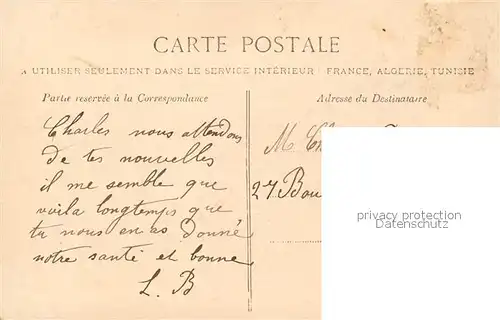 CARTE POSTALE
A UTILISER SEULEMENT DANS LE SERVICE INTÉRIEUR (FRANCE, ALGERIE, TUNISIE
Partie reservée à la Correspondance
Charles nous attendons
de tes nouvelles
il me semble que
voila longtemps que
tu nous en as donné
notre santé et bonne
L. B
Adresse du Destinataire
M. Ch
27 Bou
privacy protection
Datenschutz